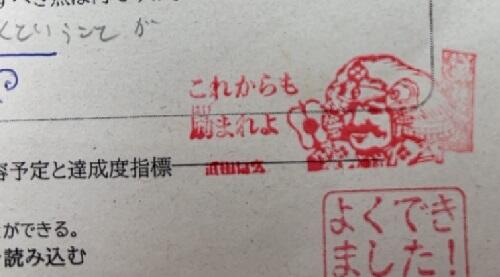 くということが
これからも
励まれよ
容予定と達成度指標
ができる。
読み込む
よくでき
ました!